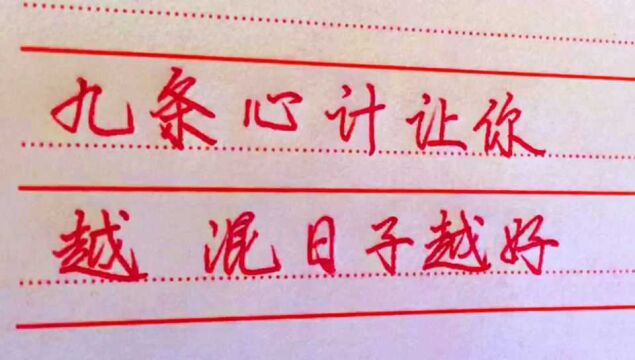 九条心计让你
越 混日子越好